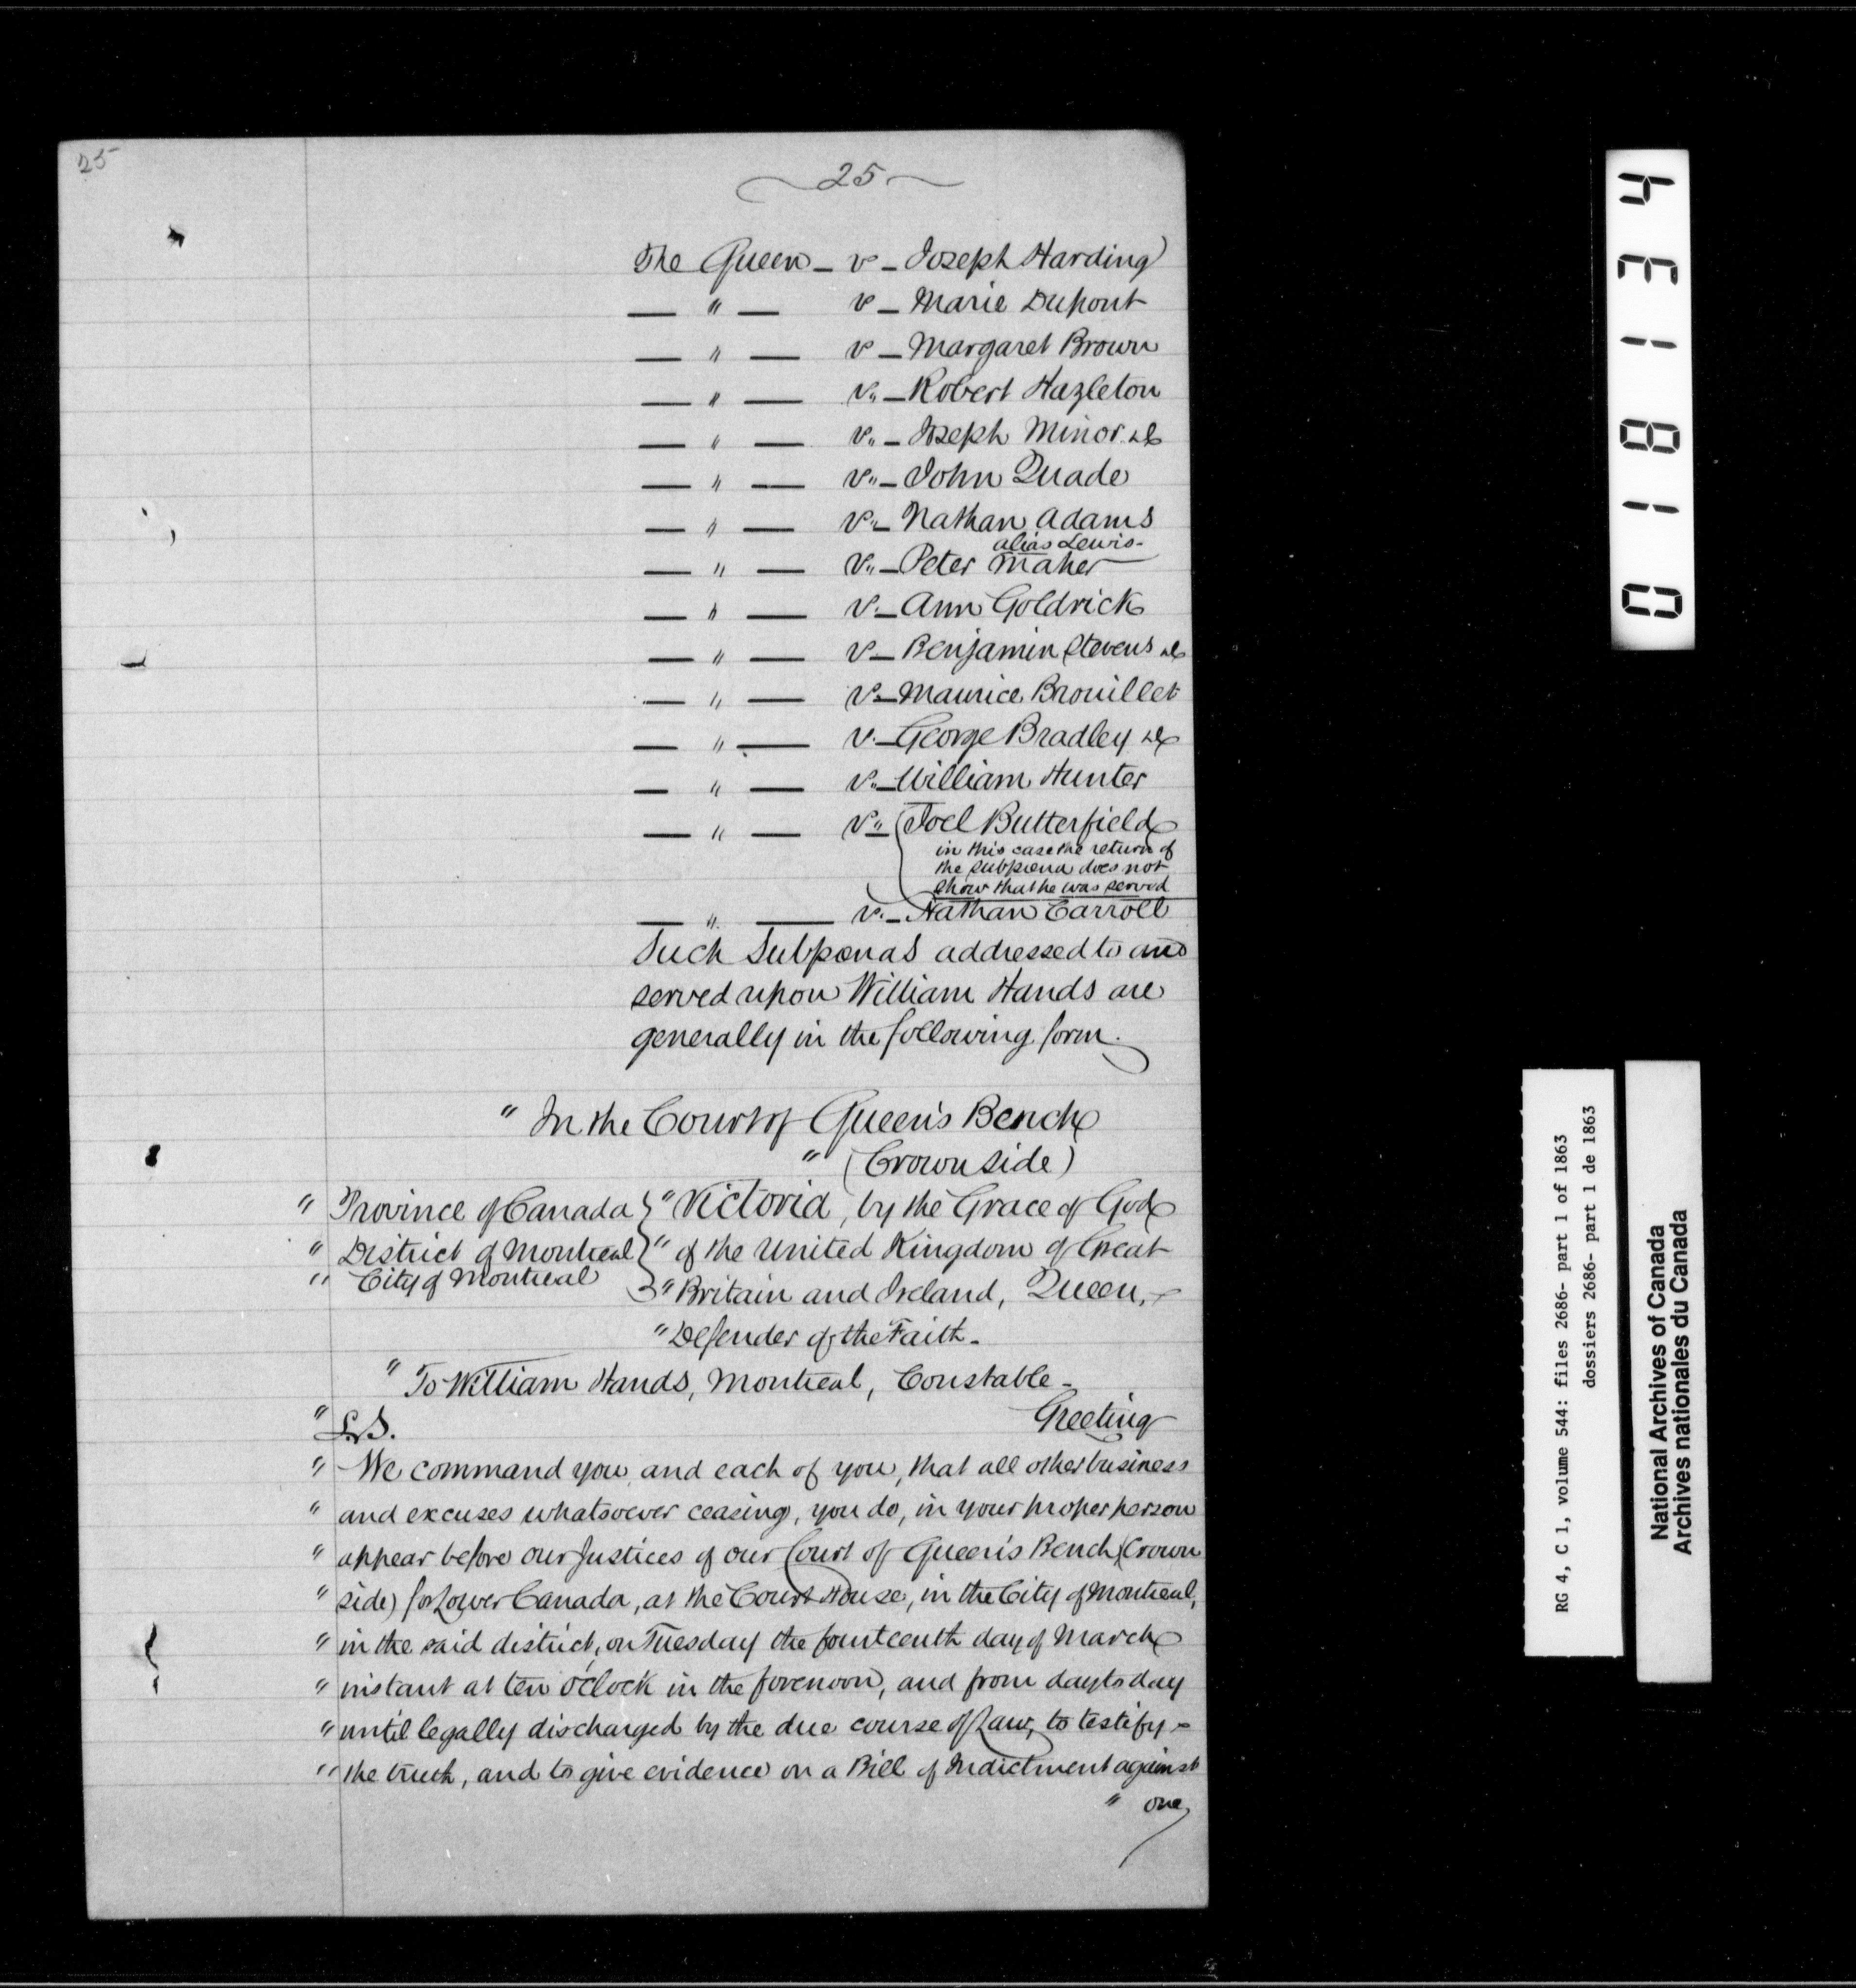 25
25
The Queen – v – Joseph Harding
— " — v – Marie Dupont
— " — v – Margaret Brown
— " — v" – Robert Hazleton
— " — v" – Joseph Minor &c
— " — v" – John Quade
— " — v" – Nathan Adams
alias Lewis –
— " — v" – Peter Maher
— " — v. – Ann Goldrick
— " — v – Benjamin Stevens &c
— " — v. – Maurice Brouillet
— " — v. – George Bradley &c
— " — v" – William Hunter
— " — v" (Joel Butterfield
in this case the return of
the subpœna does not
show that he was served
— " — v. – Nathan Carroll
Such Subpœnas addressed to and
served upon William Hands are
generally in the following form.
" In the Court of Queen's Bench
" (Crown side)
" Province of Canada } " Victoria, by the Grace of God
" District of Montreal } " of the United Kingdom of Great
" City of Montreal } " Britain and Ireland, Queen, –
" Defender of the Faith –
" To William Hands, Montreal, Constable –
" L.S. Greeting
" We command you, and each of you, that all other business
" and excuses whatsoever ceasing, you do, in your proper person
" appear before our Justices of our Court of Queen's Bench, (Crown
" side) for Lower Canada, at the Court House, in the City of Montreal,
" in the said district, on Tuesday the fourteenth day of March
" instant at ten o'clock in the forenoon, and from day to day
" until legally discharged by the due course of Law, to testify –
" the truth, and to give evidence on a Bill of Indictment against
" one,
018134
RG 4, C 1, volume 544: files 2686- part 1 of 1863
dossiers 2686- part 1 de 1863
National Archives of Canada
Archives nationales du Canada